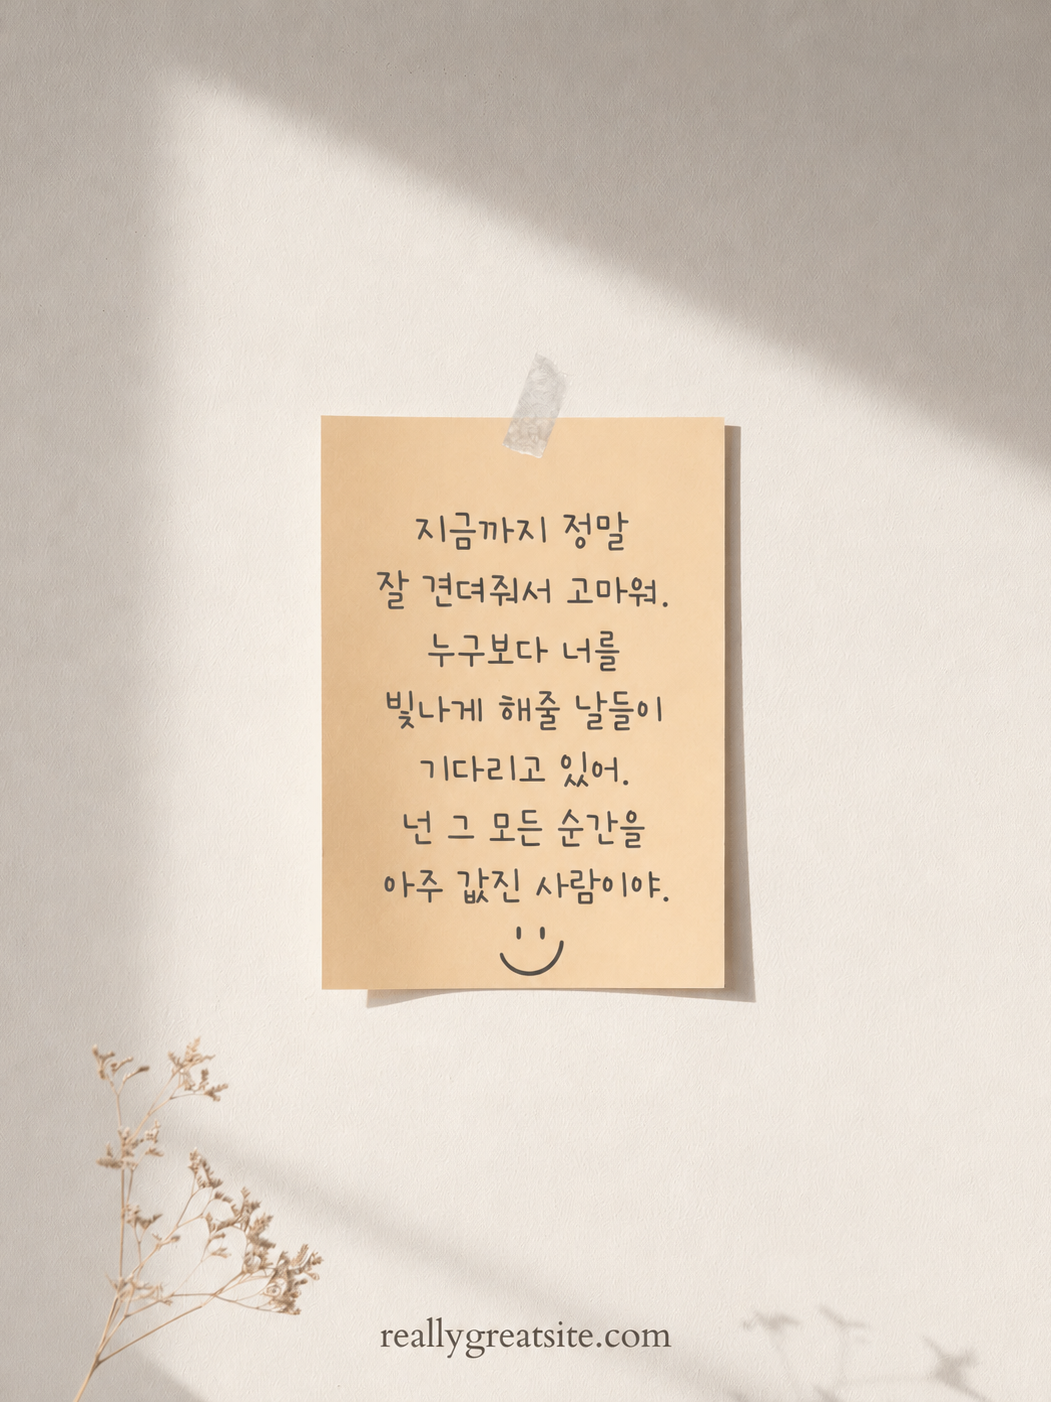 지금까지 정말
잘 견뎌줘서 고마워.
누구보다 너를
빛나게 해줄 날들이
기다리고 있어.
넌 그 모든 순간을
아주 값진 사람이야.
reallygreatsite.com